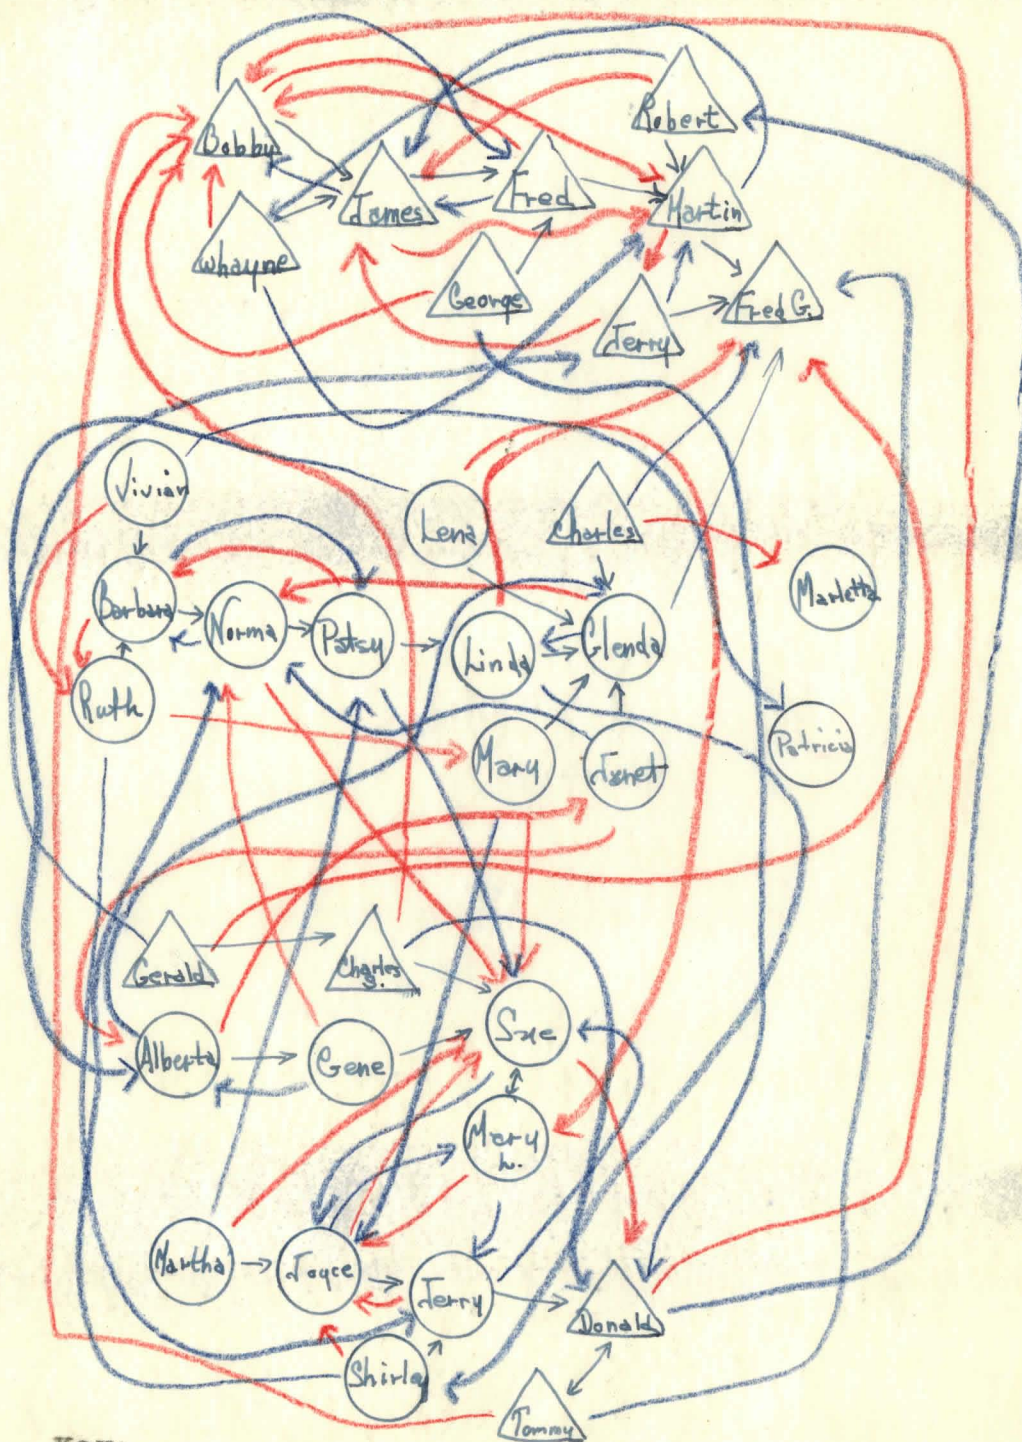 Bobby
Robert
James
Fred
Martin
Whayne
George
Fred G.
Jerry
Vivian
Lena
Charles
Marletta
Barbara
Norma
Patsy
Linda
Glenda
Ruth
Mary
Janet
Patricia
Gerald
Charles
S.
Sue
Alberta
Gene
Mary
L.
Martha
Joyce
Jerry
Donald
Shirley
Tommy